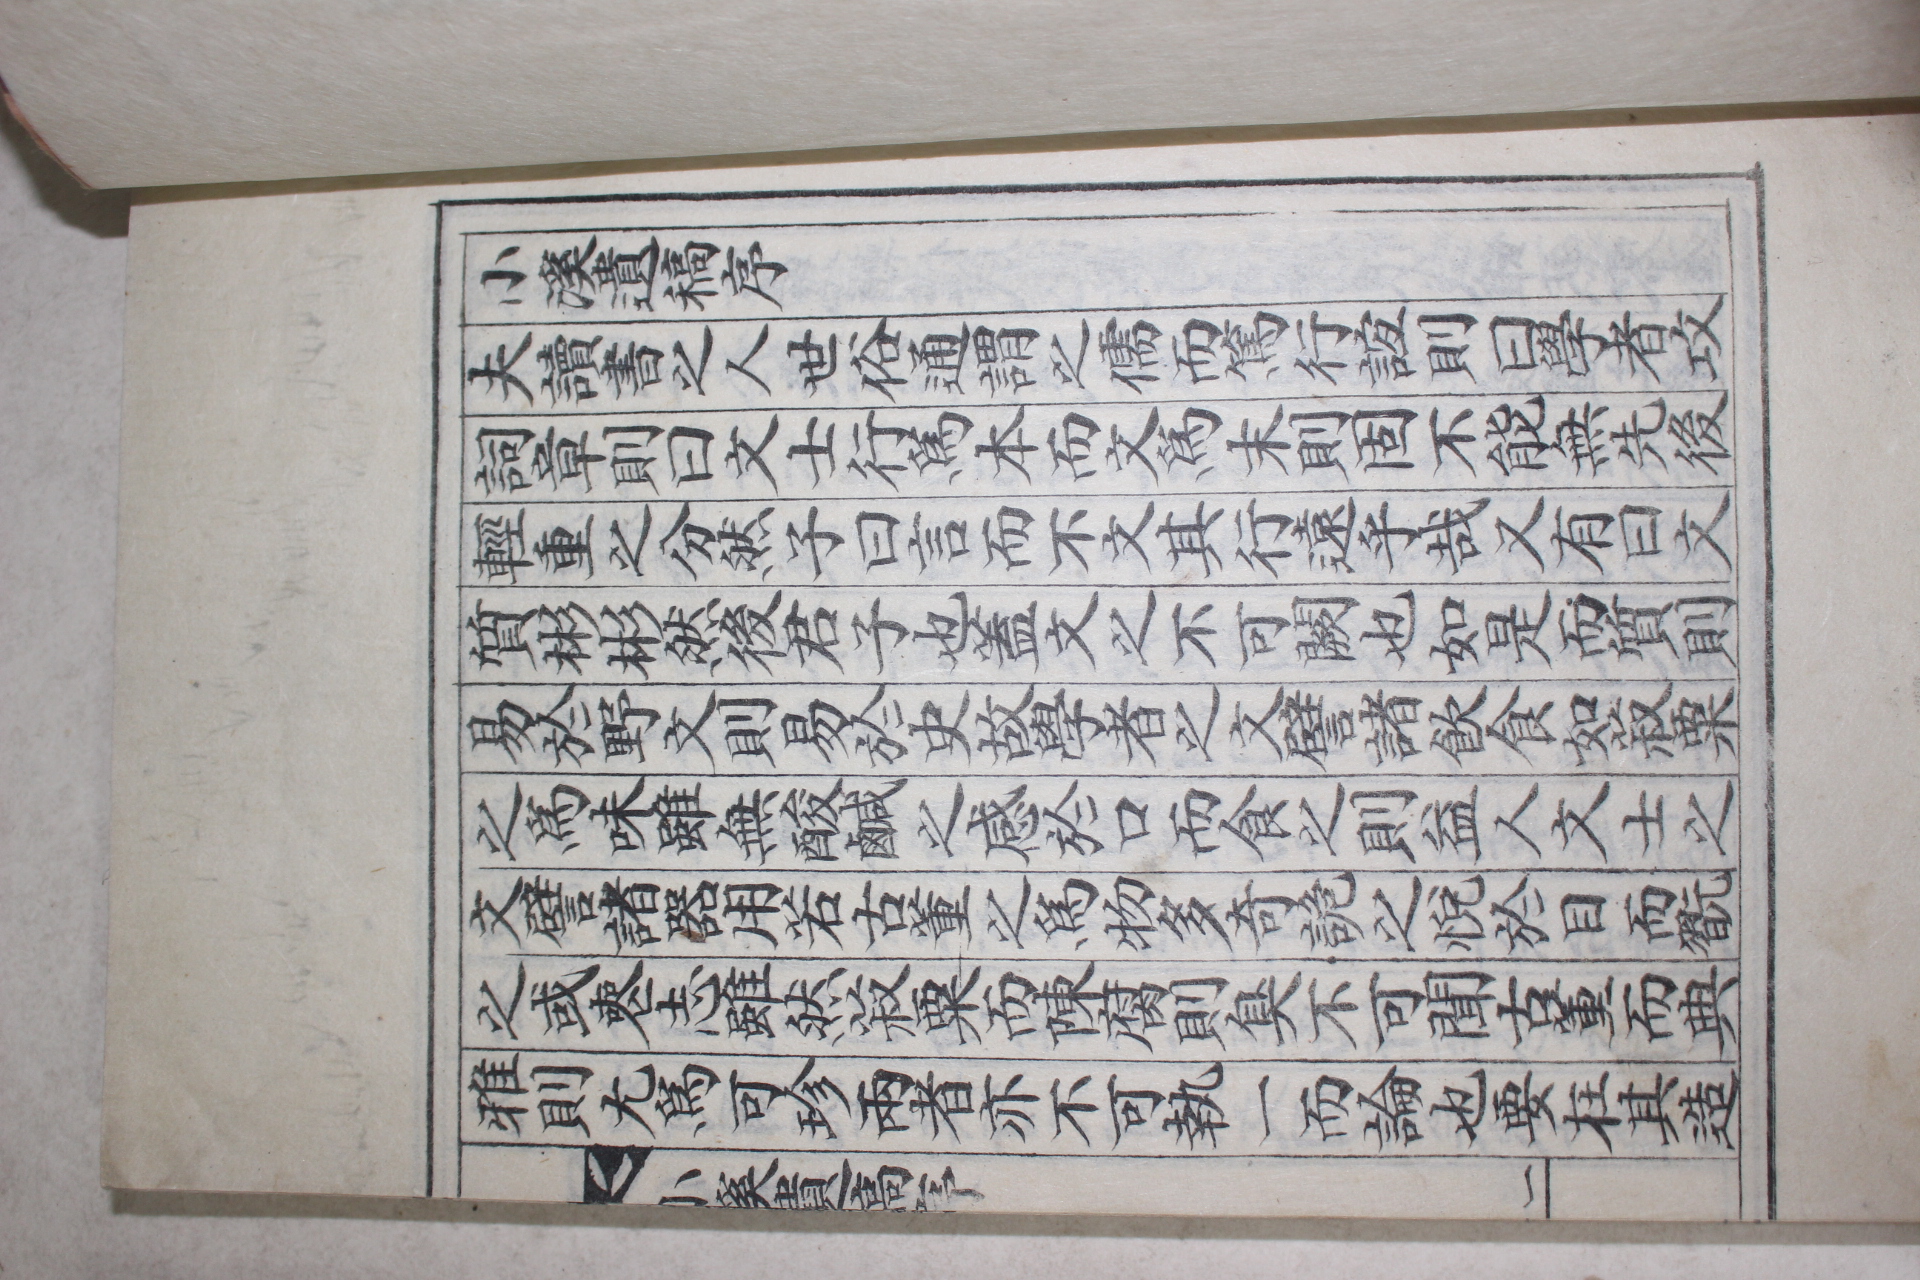 小溪遺稿序
夫讀書之人世俗通謂之儒而篤行誼則曰學者攻
詞章則曰文士行爲本而文爲末則固不能無先後
輕重之分然子曰言而不文其行遠乎哉又有曰文
質彬彬然後君子也蓋文之不可闕也如是而質則
易於野文則易於史故學者之文譬諸飮食如菽粟
之爲味雖無酸鹹之感於口而食之則益人文士之
文譬諸器用若古董之爲物多奇詭之悅於目而翫
之或喪志雖然菽粟而陳腐則臭不可聞古董而典
雅則尤爲可珍兩者亦不可執一而論也要在其造
小溪遺稿序
二